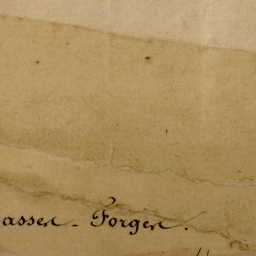 assen - Forgen.